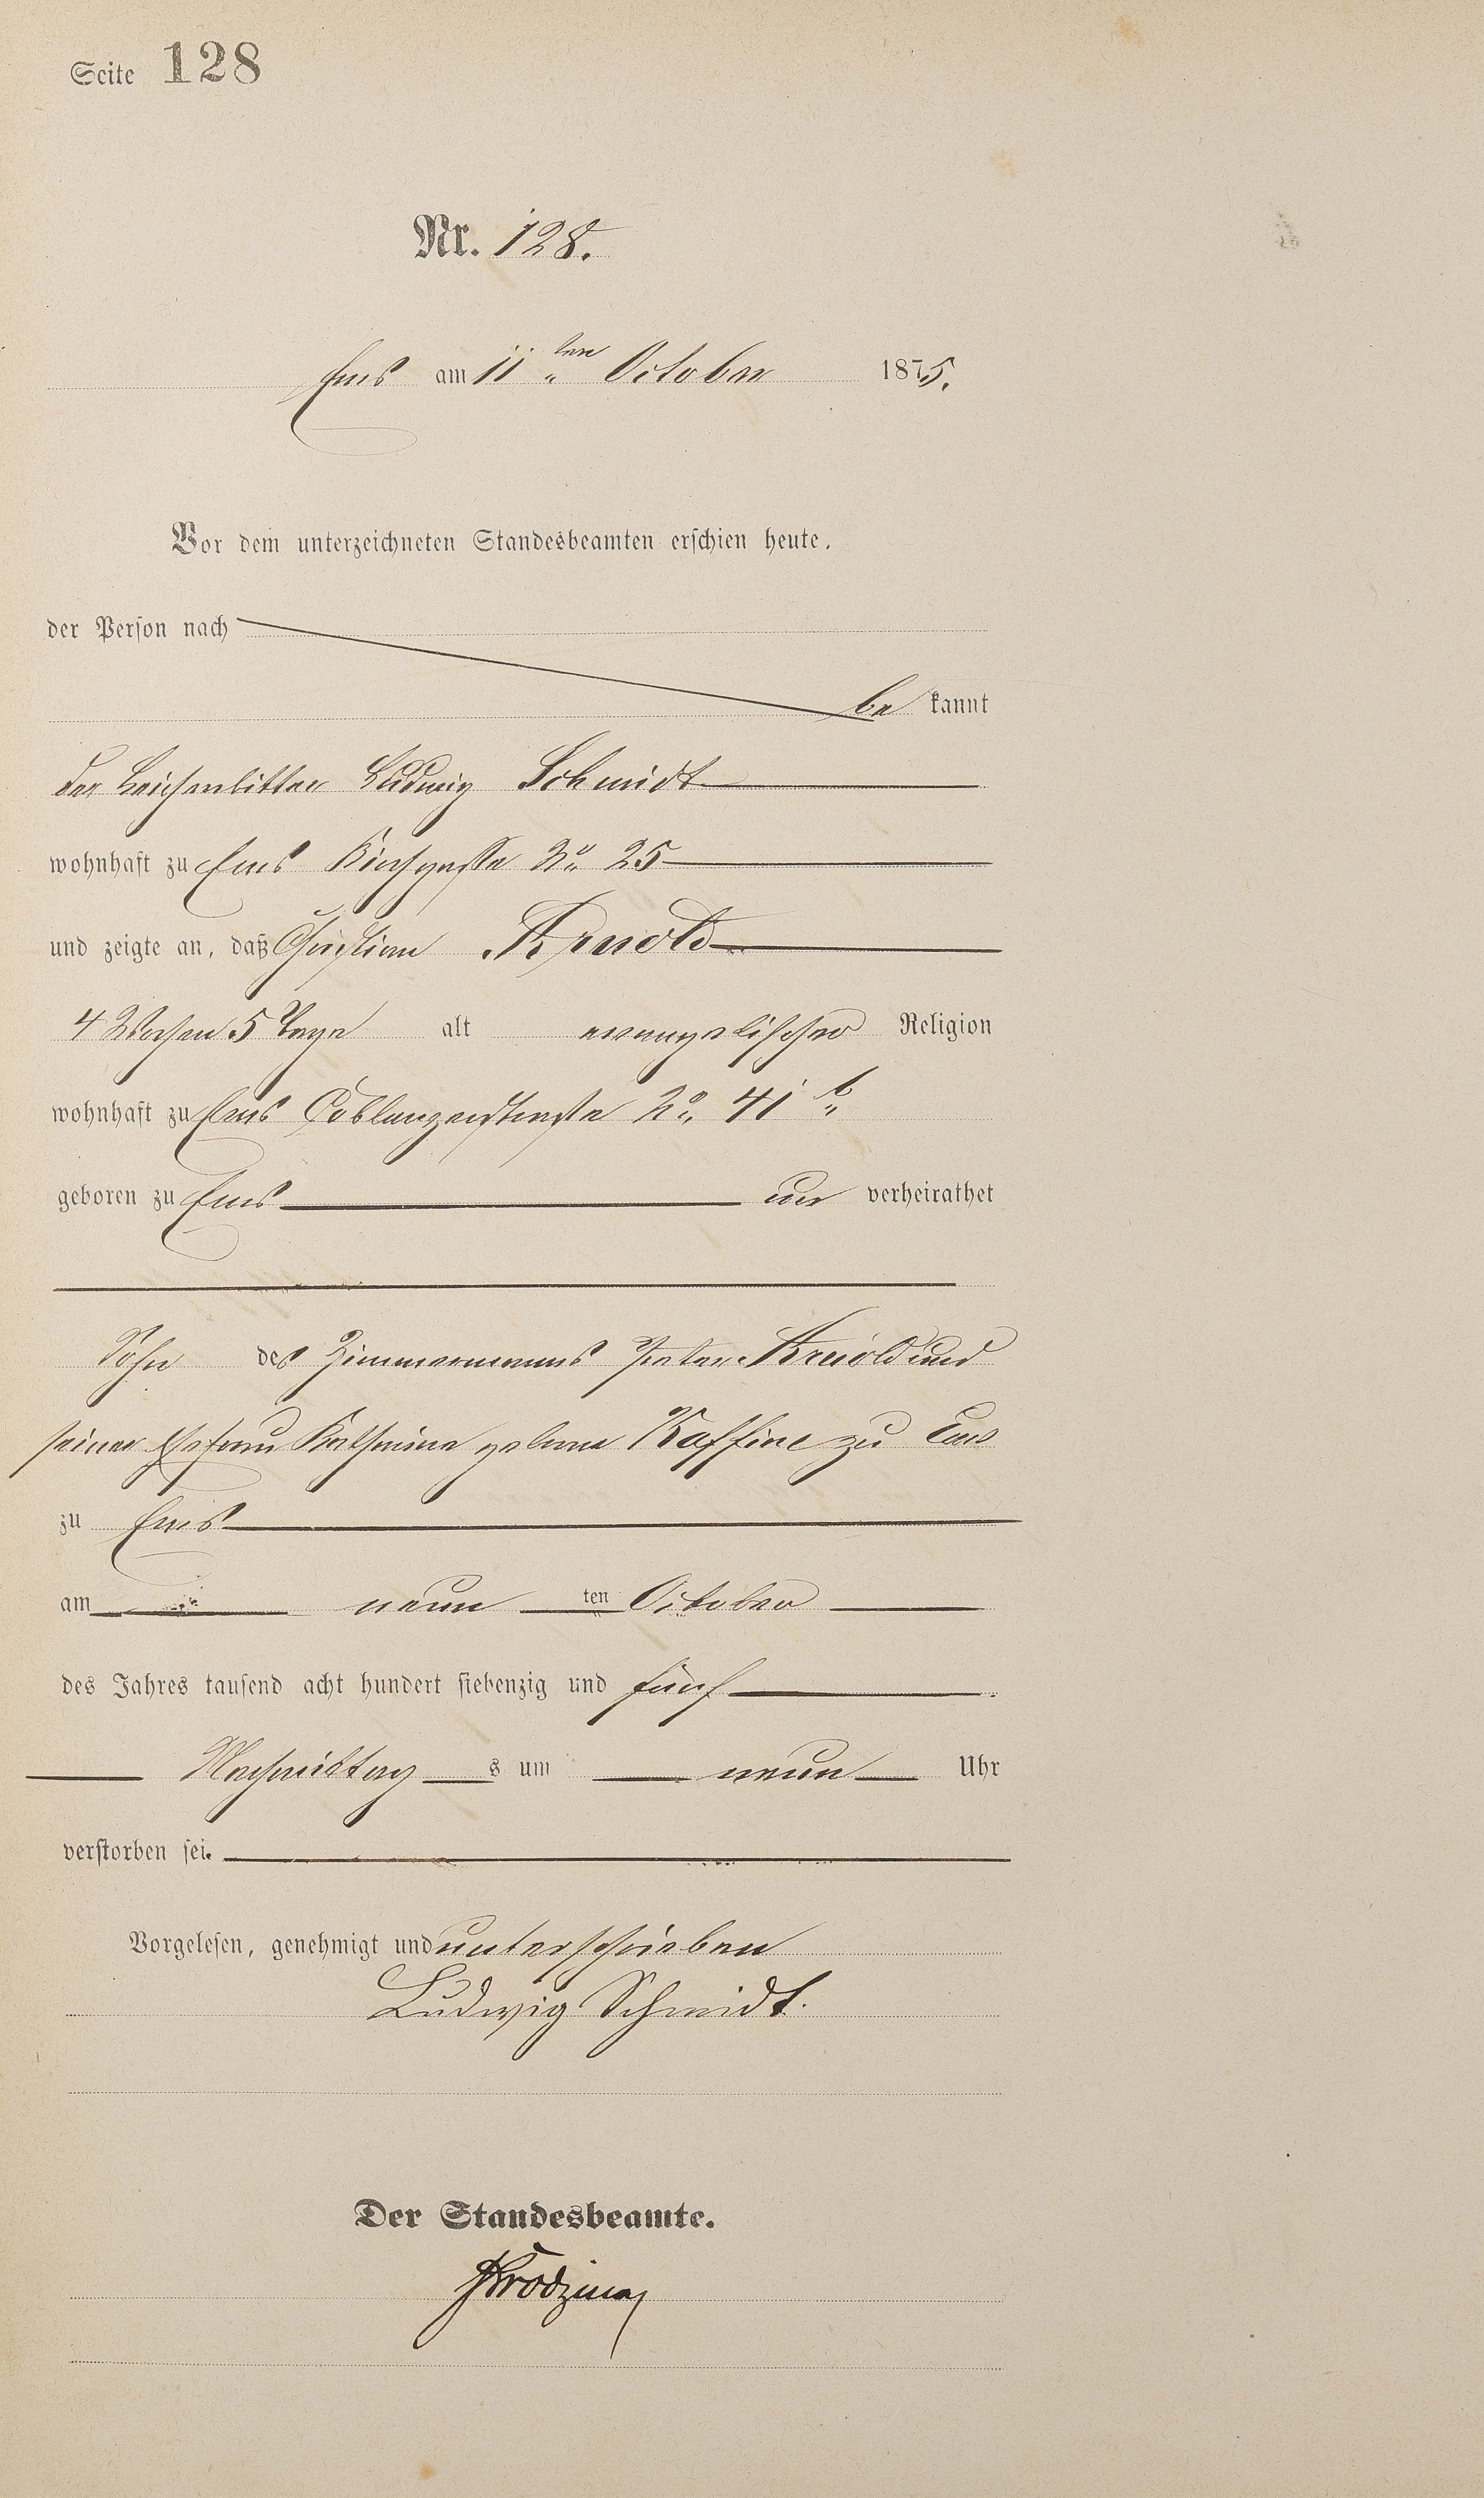 Seite 128
Nr. 128.
Ems am 11ten October 1875.
Vor dem unterzeichneten Standesbeamten erschien heute,
der Person nach
be kannt
der Leichenbitter Ludwig Schmidt
wohnhaft zu Ems Kirchgasse No 25
und zeigte an, daß Christian Arnold
4 Wochen 5 Tage alt evangelischer Religion
wohnhaft zu Ems Coblenzerstraße No 41 b
geboren zu Ems un verheirathet
Sohn des Zimmermanns Peter Arnold und
seiner Ehefrau Katharine geborne Kaffine zu Ems
zu Ems
am neun ten October
des Jahres tausend acht hundert siebenzig und fünf
Nachmittag s um neun Uhr
verstorben sei.
Vorgelesen, genehmigt und unterschrieben
Ludwig Schmidt.
Der Standesbeamte.